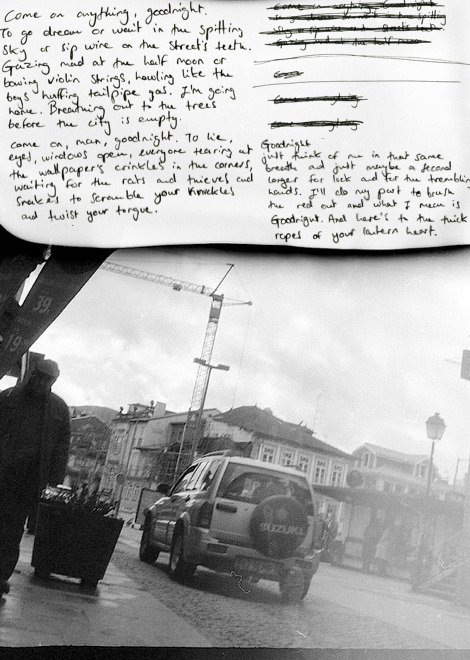 Come on anything, goodnight.
To go dream or wait in the spitting
sky or sip wire on the street's teeth.
Gazing mad at the half moon or
bowing violin strings, howling like the
boys huffing tailpipe gas. I'm going
home. Breathing out to the trees
before the city is empty.
come on, man, goodnight. To lie,
eyes, windows open, everyone tearing at
the wallpaper's crinkles in the corners,
waiting for the rats and thieves and
snakes to scramble your knuckles
and twist your tongue.
Goodnight
just think of me in that same
breath and just maybe a second
longer for luck and for the tremblin
hands. I'll do my part to brush
the red out and what I mean is
Goodnight. And here's to the thick
ropes of your lantern heart.
39
19
SUZUKI